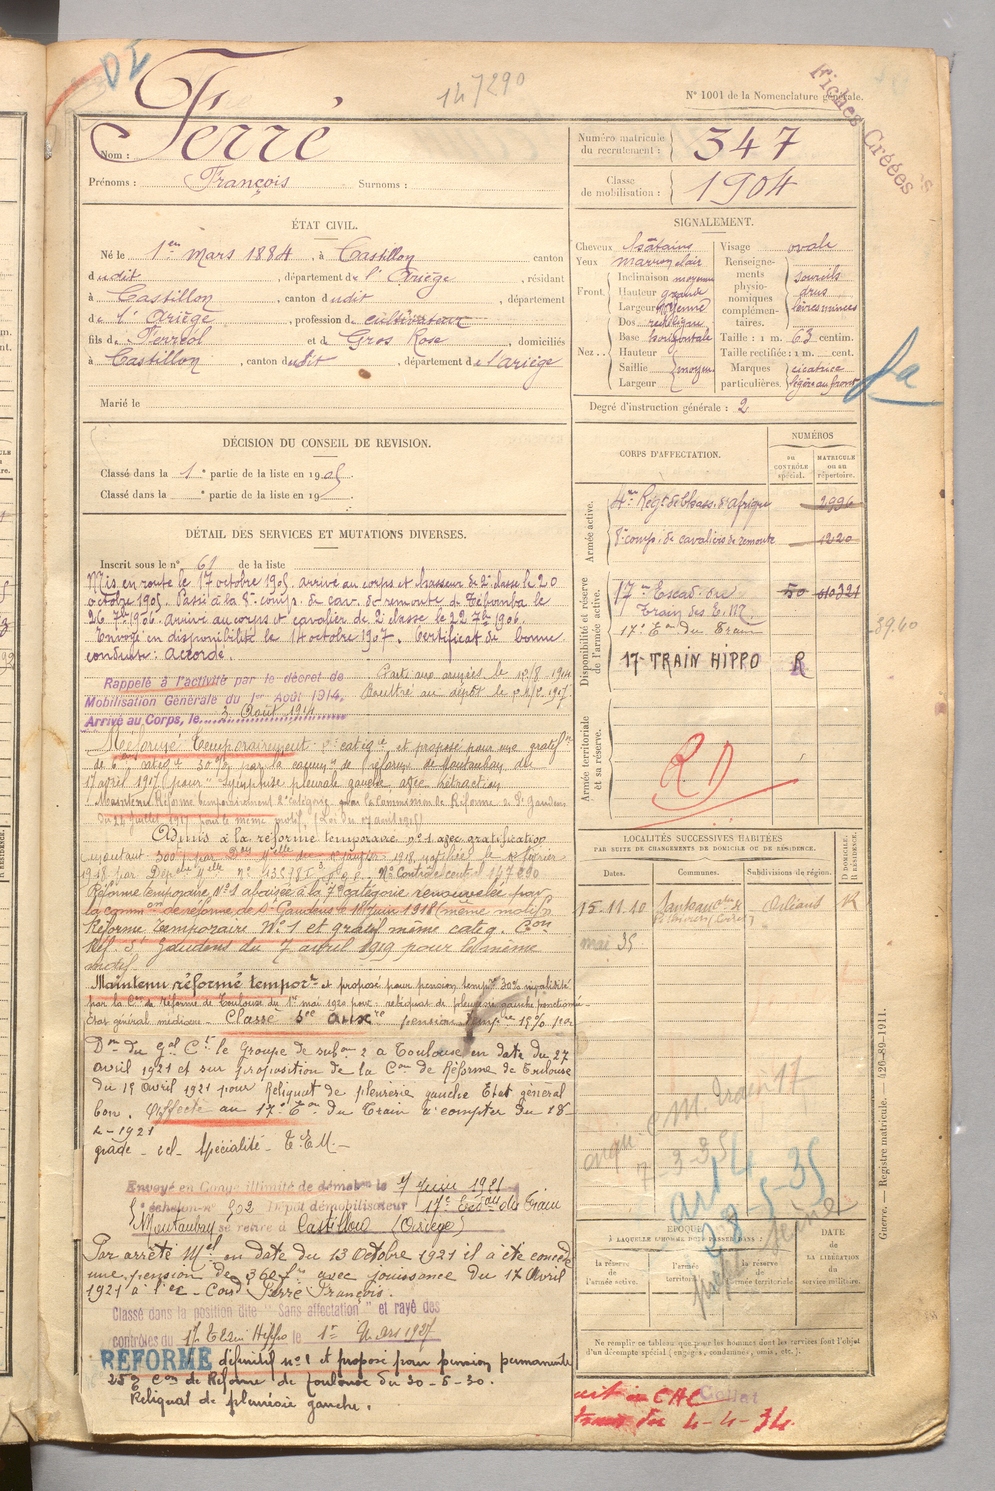 147290
N° 1001 de la Nomenclature générale.
Fiches Créées
Nom : Ferré
Prénoms : François Surnoms :
Numéro matricule du recrutement : 347
Classe de mobilisation : 1904
ÉTAT CIVIL.
Né le 1er Mars 1884, à Castillon canton
dudit, département de l'Ariège, résidant
à Castillon, canton dudit, département
de l'Ariège, profession de cultivateur
fils de Ferréol et de Gros Rose, domiciliés
à Castillon, canton dudit, département de l'Ariège
Marié le
SIGNALEMENT.
Cheveux châtains
Yeux marron clair
Front. Inclinaison moyenne
Hauteur grande
Largeur moyenne
Nez. Dos rectiligne
Base horizontale
Hauteur
Saillie moyen
Largeur
Visage ovale
Renseignements physionomiques complémentaires. sourcils drus lèvres minces
Taille : 1 m. 63 centim.
Taille rectifiée : 1 m. cent.
Marques particulières. cicatrice légère au front
Degré d'instruction générale : 2
DÉCISION DU CONSEIL DE REVISION.
Classé dans la 1e partie de la liste en 1905
Classé dans la e partie de la liste en 19
DÉTAIL DES SERVICES ET MUTATIONS DIVERSES.
Inscrit sous le n° 61 de la liste
Mis en route le 17 octobre 1905, arrivé au corps et chasseur de 2e classe le 20
octobre 1905. Passé à la 8e comp. de cav. de remonte de Tébourba le
26 7bre 1906. arrivé au corps et cavalier de 2 classe le 22 7bre 1906.
Envoyé en disponibilité le 14 octobre 1907. Certificat de bonne
conduite : accordé.
Rappelé à l'activité par le décret de
Mobilisation Générale du 1er Août 1914.
Arrivé au Corps, le 3 Août 1914
Parti aux armées le
au dépôt le
Réformé Temporairement catégie et proposé pour une gratif
de 6e catégie 30% par la comm de réforme de Montauban du
17 avril 1917 pour "Symphyse pleurale gauche avec rétraction
Maintenu Réformé temporairement 2e catégorie par la Commission de Réforme de St Gaudens
du 24 juillet 1917 pour le même motif.
Admis à la réforme temporaire n° 1 avec gratification
N° Contrôle central 147290
Réforme temporaire N° 1 à la 7e catégorie renouvelée par
la comm on de réforme de St Gaudens le 18 juin 1918 (même motif).
Réforme Temporaire N° 1 et gratif même catég. Con
Réf. St Gaudens du 7 avril 1919 pour le même
motif.
Maintenu réformé tempore et proposé pour pension tempre 30% invalidité
par la Con de Réforme de Toulouse du 1er mai 1920 pour reliquat de pleurésie gauche
État général médiocre. Classé Sce auxre pension tempre 15% par
Don du Gal Ct le Groupe de subon 2 à Toulouse en date du 27
avril 1921 et sur proposition de la Con de Réforme de Toulouse
du 19 Avril 1921 pour Reliquat de pleurésie gauche État général
bon. Affecté au 17e Eon du Train à compter du 28
4-1921
grade - cel Spécialité - T.E.M.-
Envoyé en Congé illimité de démobon le 7 Juin 1921
échelon n° 302 Dépôt démobilisateur 17e Escon du Train
Montauban se retire à Castillon (Ariège)
Par arrêté Mel en date du 13 Octobre 1921 il a été concédé
une pension de 360f avec jouissance du 17 Avril
1921 à l'ex-Cond Ferré François.
Classé dans la position dite "Sans affectation" et rayé des
contrôles du 17 Train Hippo le 1er Mars 1927
RÉFORMÉ définitif n° 1 et proposé pour pension permanente
25% Con de Réforme de Toulouse du 20-5-30.
Reliquat de pleurésie gauche.
CORPS D'AFFECTATION.
NUMÉROS
au CONTRÔLE spécial.
MATRICULE ou au répertoire.
Armée active.
4me Régt de Chass. d'Afrique 2996
8e comp. de cavaliers de remonte 1220
Disponibilité et réserve de l'armée active.
17me Escad. du Train des E.M. 50
17e Eon du Train
17e TRAIN HIPPO R
Armée territoriale et sa réserve.
RD
LOCALITÉS SUCCESSIVES HABITÉES
PAR SUITE DE CHANGEMENTS DE DOMICILE OU DE RÉSIDENCE.
Dates. Communes. Subdivisions de région. D DOMICILE. R RÉSIDENCE.
15.11.10 Orléans R
mai 35
ÉPOQUE
À LAQUELLE L'HOMME DOIT PASSER DANS :
la réserve de l'armée active.
l'armée territoriale
la réserve de l'armée territoriale
DATE de SA LIBÉRATION du service militaire.
Ne remplir ce tableau que pour les hommes dont les services font l'objet
d'un décompte spécial (engagés, condamnés, omis, etc.).
CAC
du 4-4-34.
Guerre. — Registre matricule. 426-89-1911.